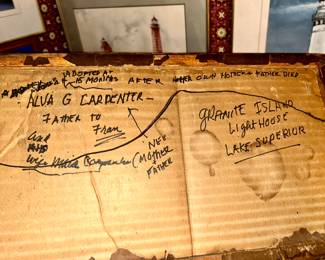 ADOPTED AT
15 MONTHS AFTER HER OWN MOTHER + FATHER DIED
ALVA G CARPENTER -
FATHER TO
Fran
and
HIS
Wife Carpenter (NEW
MOTHER
+
FATHER
GRANITE ISLAND
LigHTHOUSE
LAKE SUPERIOR